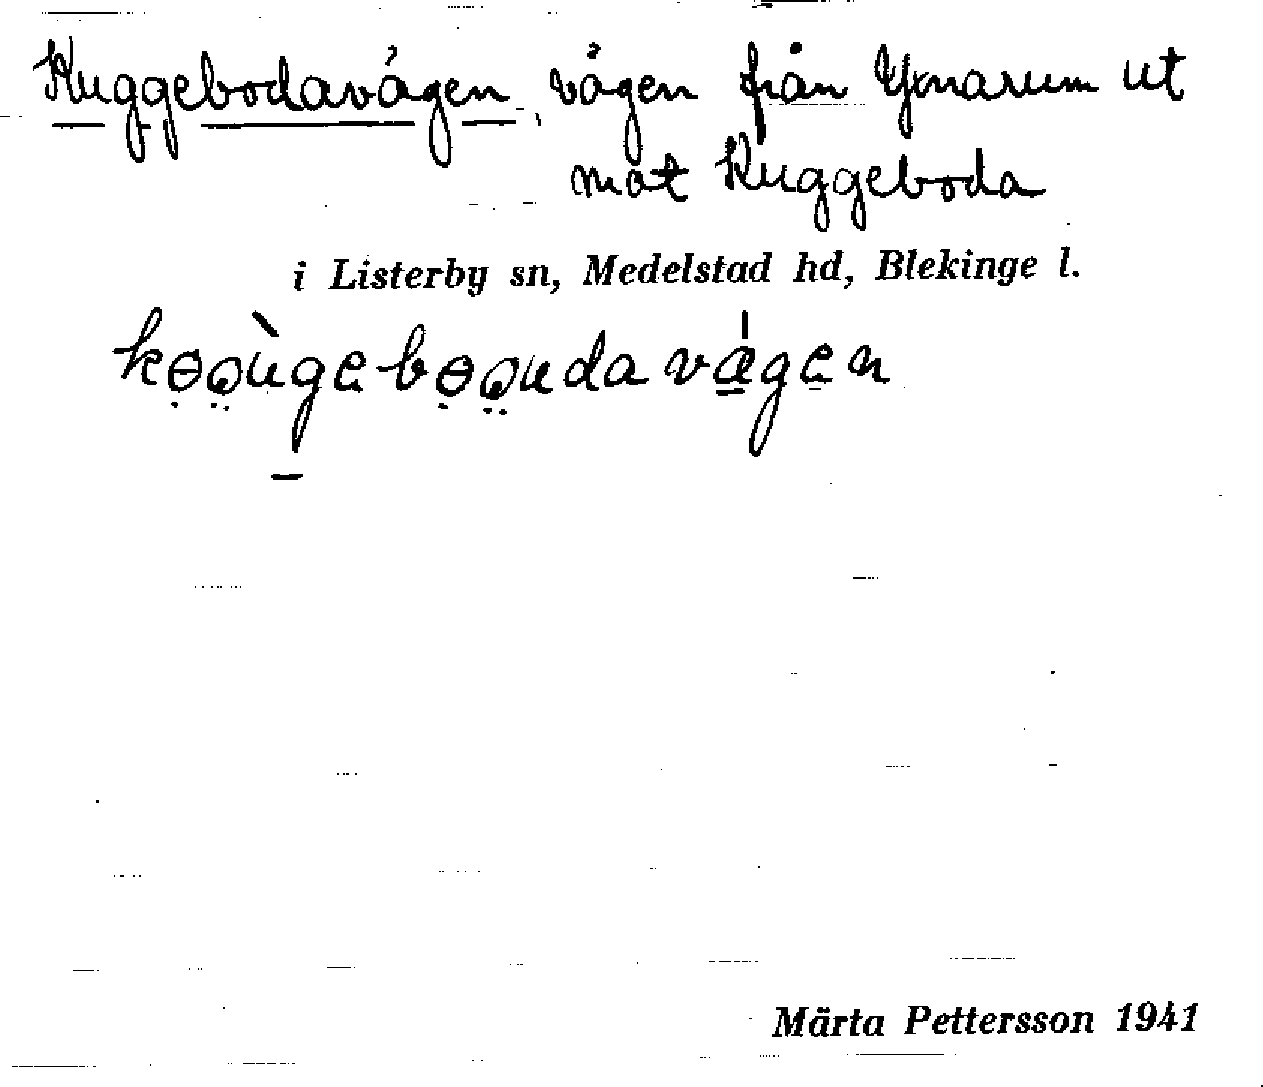 Kuggebodavägen, vägen från Yxnarum ut
mot Kuggeboda
i Listerby sn, Medelstad hd, Blekinge l.
Märta Pettersson 1941